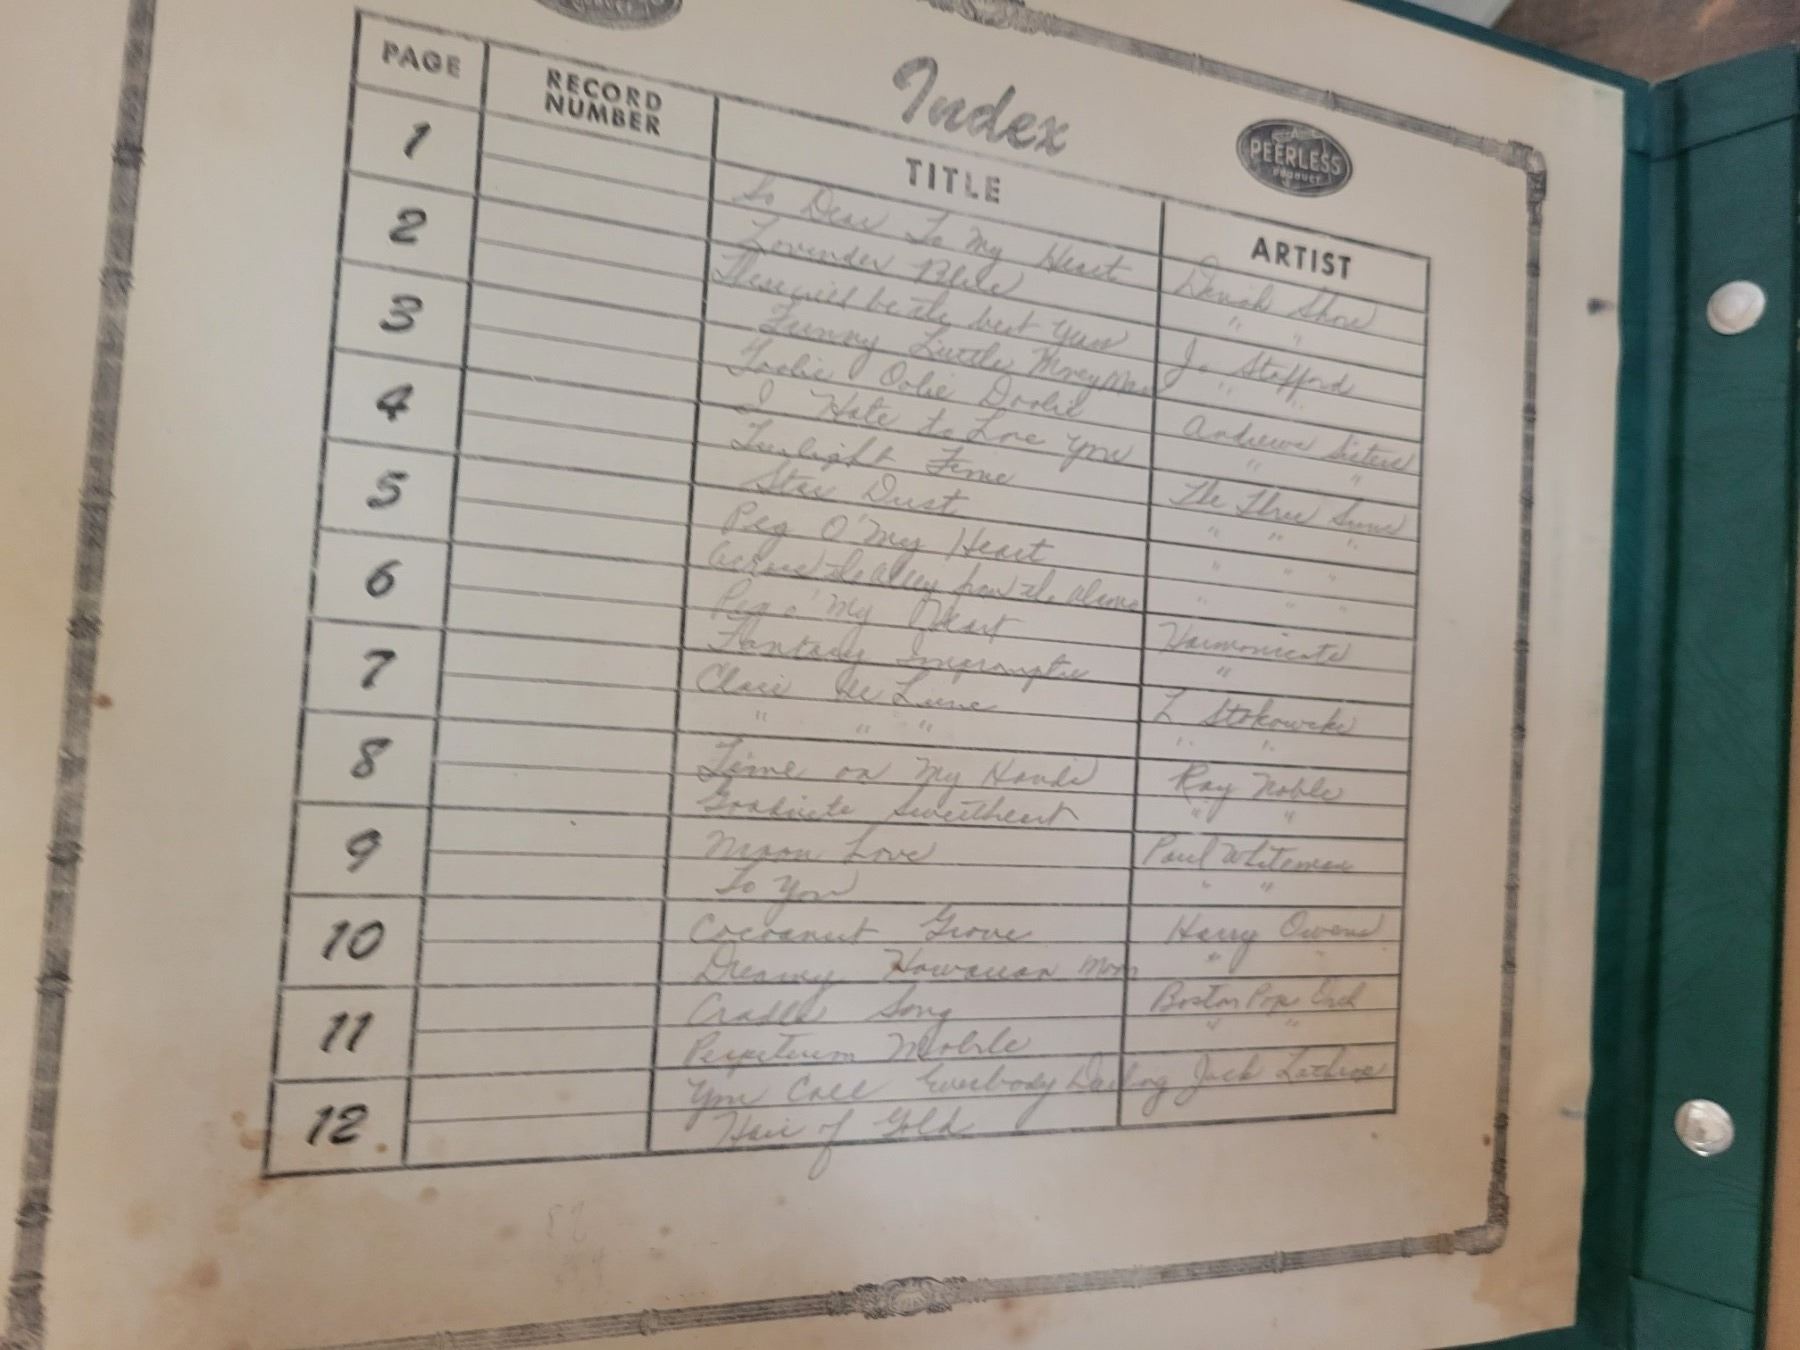 PRODUCT
Index
A
PEERLESS
PRODUCT
PAGE RECORD NUMBER TITLE ARTIST
1 So Dear To My Heart Dinah Shore
Lavender Blue " "
2 These will be the best years Jo Stafford
Funny Little Money Man " "
3 Toolie Oolie Doolie Andrews Sisters
I Hate to Love You " "
4 Twilight Time The Three Suns
Star Dust " " "
5 Peg O' My Heart " " "
across the alley from the alamo " " "
6 Peg o' My Heart Harmonicats
Fantasy Impromptu "
7 Clair de Lune L Stokowski
" " " " "
8 Time on My Hands Ray Noble
Sweetheart " "
9 Moon Love Paul Whiteman
To You " "
10 Cocoanut Grove Harry Owens
Dreamy Hawaiian Moon " "
11 Cradle Song Boston Pops Orch
Perpetuum Mobile " "
12 You Call Everbody Darling Jack Lathrop
Hair of Gold